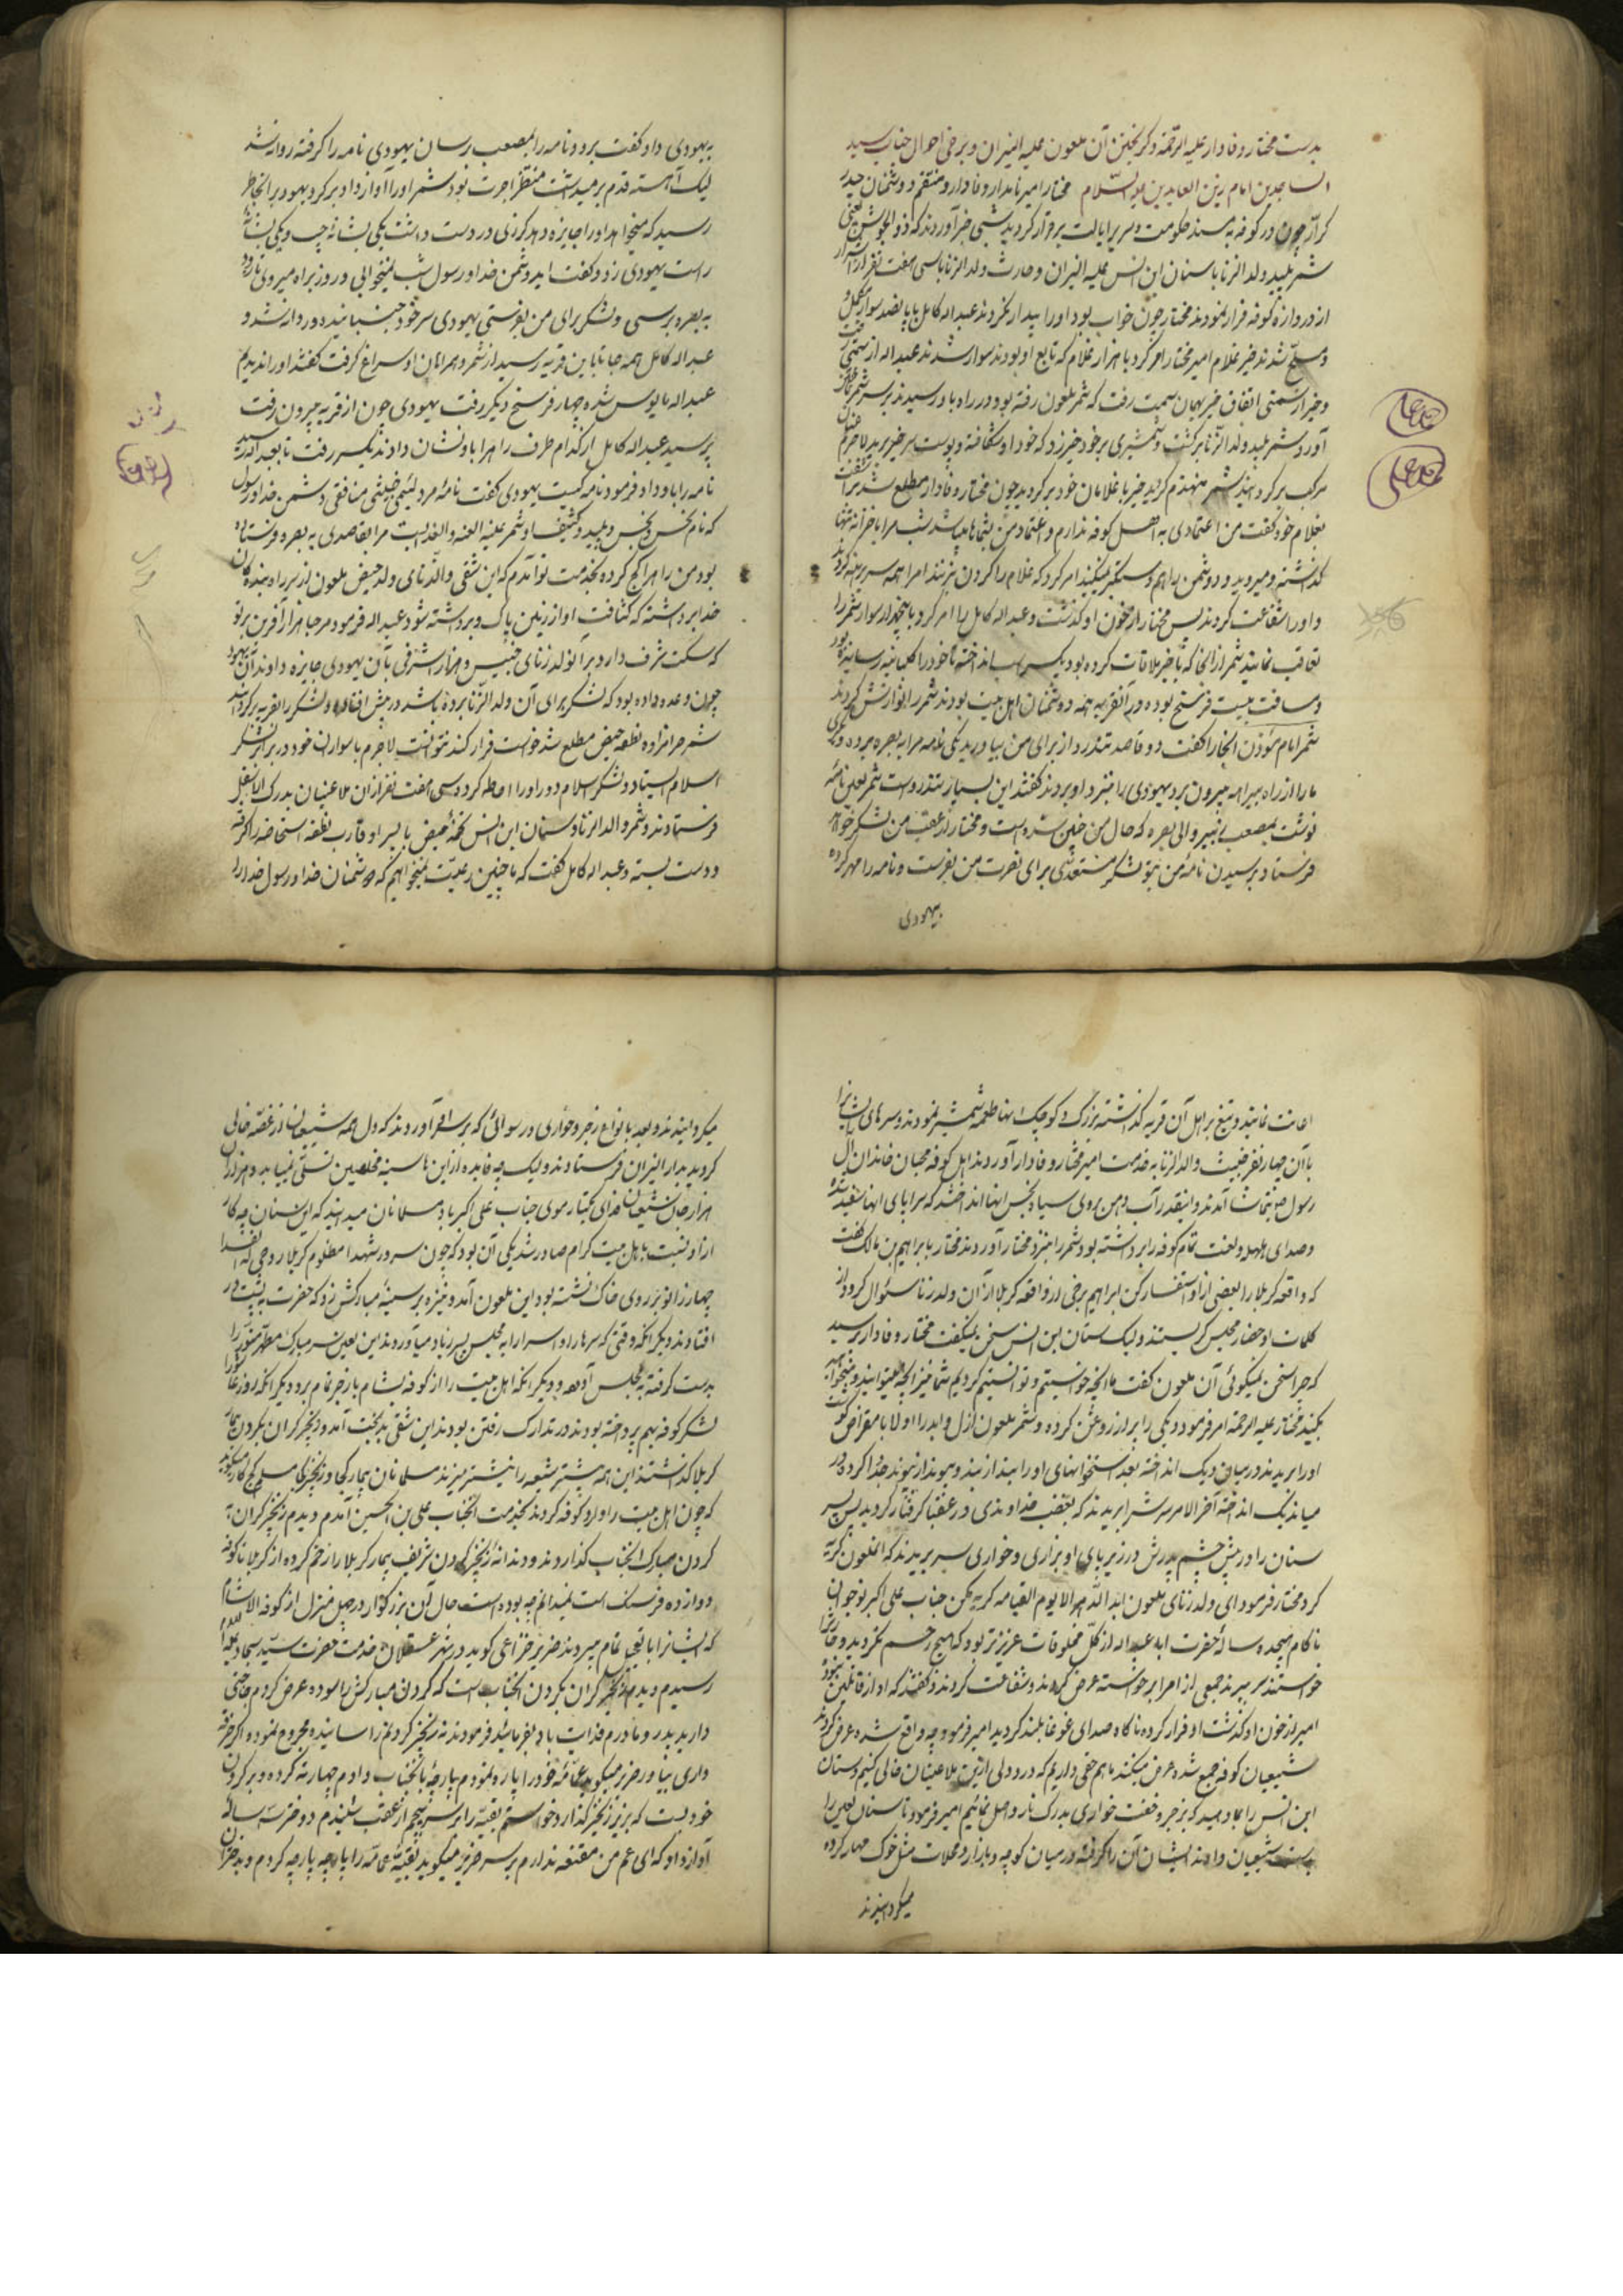 بدست مختار وفادار علیه الرحمة و گریختن آن ملعون علیه النیران و برخی احوال جناب سید
الساجدین امام زین العابدین علیه السلام مختار امیر نامدار وفادار و منتقم دوشمنان حیدر
کرار چون در کوفه بمسند حکومت و سریر ایالت برقرار گردید شبی خبر آوردند که ذوالجوشن یعنی
شمر پلید ولدالزنا با سنان ابن انس علیه النیران و حارث ولدالزنا با سی هفت نفر از اشرار
از دروازه کوفه فرار نمودند مختار چون خواب بود او را بیدار نکردند عبداله کامل با پانصد سوار مکمل و
و مسلح شدند خیر غلام امیر مختار امر کرد با هزار غلام که تابع او بودند سوار شدند عبداله از سمتی رفت
و خیر از سمتی اتفاق خیر بهمان سمت رفت که شمر ملعون رفته بود در راه باو رسیدند بر سر شمر
آورد شمر پلید ولدالزنا برگشت و شمشیری بر خود خیر زد که خود او شکافته و پوست سر خیر برید لاجرم
مرکب برگردانید شمر منهزم گردید خیر با غلامان خود برگردید چون مختار وفادار مطلع شد
بغلام خود گفت من اعتمادی به اهل کوفه ندارم و اعتماد من بشماها باشد شب مرا با خزانه تنها
گذاشته و میروید و دوشمن را هم دستگیر نمیکنید امر کرد که غلام را گردن بزنند امرا همه سر برهنه کردند
و او را شفاعت کردند پس مختار از خون او گذشت و عبداله کامل را امر کرد با پنجهزار سوار شمر را
تعاقب نمایند شمر از آنجا که با خیر ملاقات کرده بود یکسر اسب انداخته تا خود را کلبانیه رسانیده بود
و مسافت بیست فرسخ بوده و در آنقریه همه دوشمنان اهل بیت بودند شمر را نوازش کردند
شمر امام مؤذن آنجا را گفت دو قاصد تندرو از برای من بیاورید یکی نامه مرا به بصره برده و دیگری
ما را از راه بیراهه بیرون برد یهودی را بنزد او بردند گفتند این بسیار تندرو است شمر لعین نامه
نوشت بمصعب زبیر والی بصره که حال من چنین شده است و مختار از عقب من لشکر خواهد
فرستاد برسیدن نامه من بتو لشکر مستعدی برای نصرت من بفرست و نامه را مهر کرده
بیهودی
بیهودی داد و گفت برو و نامه را بمصعب رسان یهودی نامه را گرفته روانه شد
لیک آهسته قدم برمیداشت منتظر اجرت بود شمر او را آواز داد برگرد یهود بر آنخاطر
رسید که میخواهد او را جایزه دهد گرزی در دست داشت یکی بشانه چپ و یکی بشانه
راست یهودی زد و گفت ایدوشمن خدا و رسول شب نمیخوابی و روز براه میروی تا زود
به بصره برسی و لشکر برای من بفرستی یهودی سر خود جنبانید و روانه شد و
عبداله کامل همه جا تا باین قریه رسید از شمر و همراهان او سراغ گرفت گفتند او را ندیدیم
عبداله مایوس شده چهار فرسخ دیگر رفت یهودی چون از قریه بیرون رفت
پرسید عبداله کامل از کدام طرف راه را باو نشان دادند یکسر رفت تا بعبداله رسید
نامه را باو داد فرمود نامه کیست یهودی گفت نامه مرد لئیمی خبیثی منافقی دشمن خدا و رسول
که نام نحس و نجس و پلید و کثیف او شمر علیه اللعنه والعذابست مرا بقاصدی به بصره فرستاده
بود من راه را کج کرده بخدمت تو آمدم که این شقی ولدالزنای ولد حیض ملعون از سر راه بنده گان
خدا برداشته که کثافت او از زمین پاک و برداشته شود عبداله فرمود مرحبا هزار آفرین بر تو
که سگت شرف دارد بر آنولد زنای خبیث و هزار اشرفی بآن یهودی جایزه دادند آن یهود
چون وعده داده بود که لشکر برای آن ولدالزنا برده باشد در پیش افتاد و لشکر را بقریه برگردانید
شمر حرامزاده نطفه حیض مطلع شد خواست فرار کند نتوانست لاجرم با سواران خود در برابر لشکر
اسلام ایستاد و لشکر اسلام دور او را احاطه کرد و سی هفت نفر از آن ملاعینان بدرک الاسفل
فرستادند و شمر ولدالزنا و سنان ابن انس تخم حیض با پسر او و قارب نطفه استحاضه را گرفته
و دست بسته و عبداله کامل گفت که ما چنین رعیت نمیخواهیم که دوشمنان خدا و رسول خدا را
اعانت نمایند و تیغ بر اهل آن قریه گذاشته بزرگ و کوچک انها طعمه شمشیر نمودند و سرهای ایشانرا
با آن چهار نفر خبیث ولدالزنا به خدمت امیر مختار وفادار آوردند اهل کوفه محبان خاندان آل
رسول بتماشا آمدند و اینقدر آب دهن بروی سیاه نجس انها انداختند که سراپای انها سفید شده
و صدای هلهله و لعنت تمام کوفه را برداشته بود شمر را بنزد مختار آوردند مختار بابراهیم بن مالک گفت
که واقعه کربلا را بعضی از او استفسار کن ابراهیم برخی از واقعه کربلا از آن ولد زنا سئوال کرد و از
کلمات او حضار مجلس گریستند و لیک سنان ابن انس سخن نمیگفت مختار وفادار پرسید
که چرا سخن نمیگوئی آن ملعون گفت ما انچه خواستیم و توانستیم کردیم شما نیز انچه میتوانید و میخواهید
بکنید مختار علیه الرحمة امر فرمود دیگی را پر از روغن کرده و شمر ملعون ازل و ابد را اولا با مقراض گوشت
او را بریدند و در میان دیگ انداخته بعد استخوانهای او را بند از بند و پیوند از پیوند جدا کرده در
میان دیگ انداخته آخرالامر سر شمر را بریدند که بغضب خداوندی در عقبا گرفتار گردید پس پسر
سنان را در پیش چشم پدرش در زیر پای او بزاری و خواری سر بریدند که انملعون گریه
کرد مختار فرمود ای ولد زنای ملعون ابدالدهر الا یوم القیامه گریه مکن جناب علی اکبر نوجوان
ناکام هیجده ساله حضرت ابا عبداله از کل مخلوقات عزیزتر بود که هیچ رحم نکردید و قارب را
خواستند سر ببرند جمعی از امرا برخواسته عرض کردند و شفاعت کردند و گفتند که او از قاتلین نبود
امیر از خون او گذشت او فرار کرده ناگاه صدای غوغا بلند گردید امیر فرمود چه واقع شده عرض کردند
شیعیان کوفه جمع شده عرض میکنند ما هم حقی داریم که درد دلی ازین ملاعینان خالی کنیم و سنان
ابن انس را بما دهید که بزجر و خفت خواری بدرک نار واصل نمائیم امیر فرمود تا سنان لعین را
بدست شیعیان دادند ایشان آن را گرفته در میان کوچه و بازار و محلات مثل خوک مهار کرده
میگردانیدند
میگردانیدند و بعد بانواع زجر و خواری و رسوائی که بر سر او آوردند که دل همه شیعیان از غصه خالی
گردید بدار النیران فرستادند و لیک چه فایده ازین ها سینه مخلصین تسلی نمییابد و هزاران
هزار جان شیعیان فدای یکتار موی جناب علی اکبر باد مسلمانان میدانید که این سنان چه کار
از او نسبت باهل بیت کرام صادر شد یکی آن بود که چون سرور شهدا مظلوم کربلا روحی له الفدا
چهار زانو بر روی خاک نشسته بود این ملعون آمد و نیزه بر سینه مبارکش زد که حضرت به پشت در
افتادند و دیگر انکه وقتی که سرها را و اسرا را به مجلس پسر زیاد میآوردند این لعین سر مبارک مطهر منور را
بدست گرفته بمجلس آورد و دیگر انکه اهل بیت را از کوفه بشام با زجر تمام برد و دیگر انکه روز عاشورا
لشکر کوفه بهم پرداخته بودند و در تدارک رفتن بودند این شقی بدبخت آمد و زنجیر گران بگردن بیمار
کربلا گذاشتند این همه بیشتر شیعه را نیشتر میزند مسلمانان بیمار کجا و زنجیر کجا
که چون اهل بیت را وارد کوفه کردند بخدمت انجناب علی بن الحسین آمدم دیدم زنجیر گران به
گردن مبارک انجناب گذاردند و دندانه زنجیر گردن شریف بیمار کربلا را زخم کرده از کربلا تا کوفه
دوازده فرسنگ است نمیدانم چه بوده است حال آن بزرگوار در چهل منزل از کوفه الا شام
که ایشانرا با تعجیل تمام میبردند ضریر خزاعی گوید در شهر عسقلان خدمت حضرت سید سجاد علیه السلام
رسیدم دیدم زنجیر گران بگردن انجناب است که گردن مبارکش را سوده عرض کردم حاجتی
دارید پدر و مادرم فدایت باد بفرمائید فرمودند نه زنجیر گردنم را سائیده مجروح نموده اگر خرقه
داری بیاور ضریر میگوید عمامه خود را پاره نمودم پارچه بانجناب دادم چهار ته کرده و بر گردن
خود بست که بزیر زنجیر گذارد خواستم بقیه را بر سر پیچم از عقب شنیدم دختر سه ساله
آواز داد که ای عم من مقنعه ندارم بر سر ضریر میگوید بقیه عمامه را پارچه پارچه کردم و بدختران